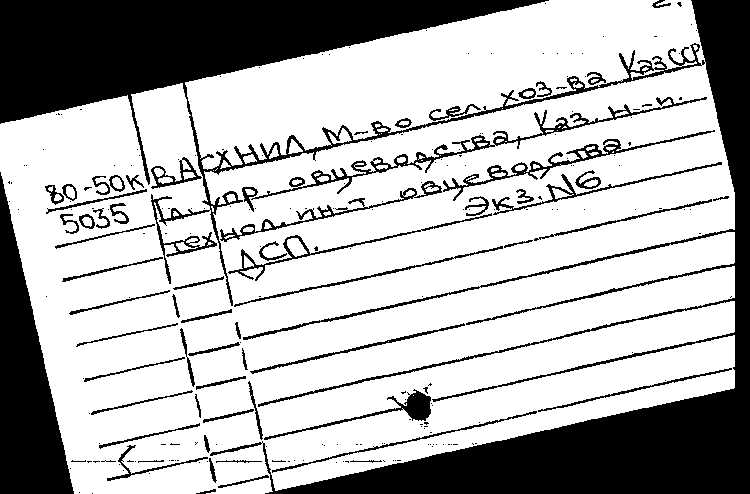 2.
80-50к ВАСХНИЛ, М-во сел. хоз-ва КазССР.
5035 Гл. упр. овцеводства, Каз. н-и.
технол. ин-т овцеводства.
ДСП. Экз. N6.